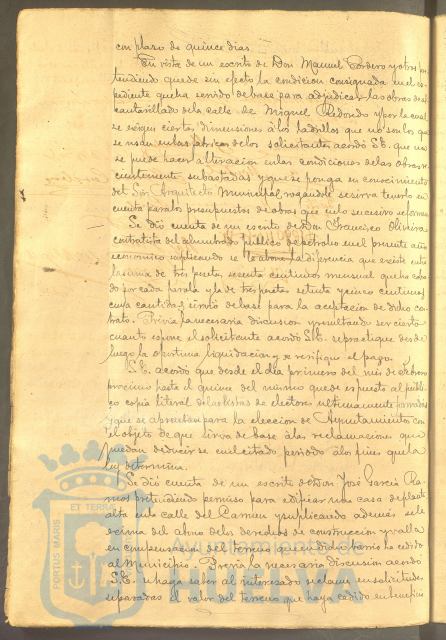 con plazo de quince dias.
En vista de un escrito de Don Manuel Cordero y otros pre
tendiendo quede sin efecto la condicion consignada en el es
pediente que ha servido de base para adjudicar las obras de al
cantarillado de la calle de Miguel Redondo y por la cual
se exigen ciertas dimensiones á los ladrillos que no son los que
se usan en las fabricas de los solicitantes acordó S.E. que no
se puede hacer alteracion en las condiciones de las obras re
cientemente subastadas y que se ponga en conocimiento
del Sr. Arquitecto Municipal rogandole se sirva tenerlo en
cuenta para los presupuestos de obras que en lo sucesivo se formen
Se dió cuenta de un escrito de Don Francisco Oliveira
contratista del alumbrado público de petroleo en el presente año
economico suplicando se le abone la diferencia que existe entre
la suma de tres pesetas sesenta centimos mensual que ha cobra
do por cada farola y la de tres pesetas setenta y cinco centimos
cuya cantidad sirvió de base para la aceptacion de dicho con
trato. Previa la necesaria discusion y resultando ser cierto
cuanto espone el solicitante acordó S.E. se practique desde
luego la oportuna liquidacion y se verifique el pago.
S.E. acordó que desde el dia primero del mes de Febrero
proximo hasta el quince del mismo quede espuesto al publi
co copia literal de las listas de electores ultimamente formadas
y que se aprueban para la eleccion de Ayuntamiento con
el objeto de que sirva de base á las reclamaciones que
puedan deducirse en el citado periodo á los fines que la
ley determina.
Se dió cuenta de un escrito de Don José Garcia Ra
mos pretendiendo permiso para edificar una casa de planta
alta en la calle del Carmen y suplicando ademas se le
exima del abono de los derechos de construccion y valla
en compensacion del terreno que en dicho barrio ha cedido
al Municipio. Previa la necesaria discusion acordó
S.E. se haga saber al interesado reclame en solicitudes
separadas el valor del terreno que haya cedido en beneficio
PORTUS MARIS ET TERRAE
Ayuntamiento de